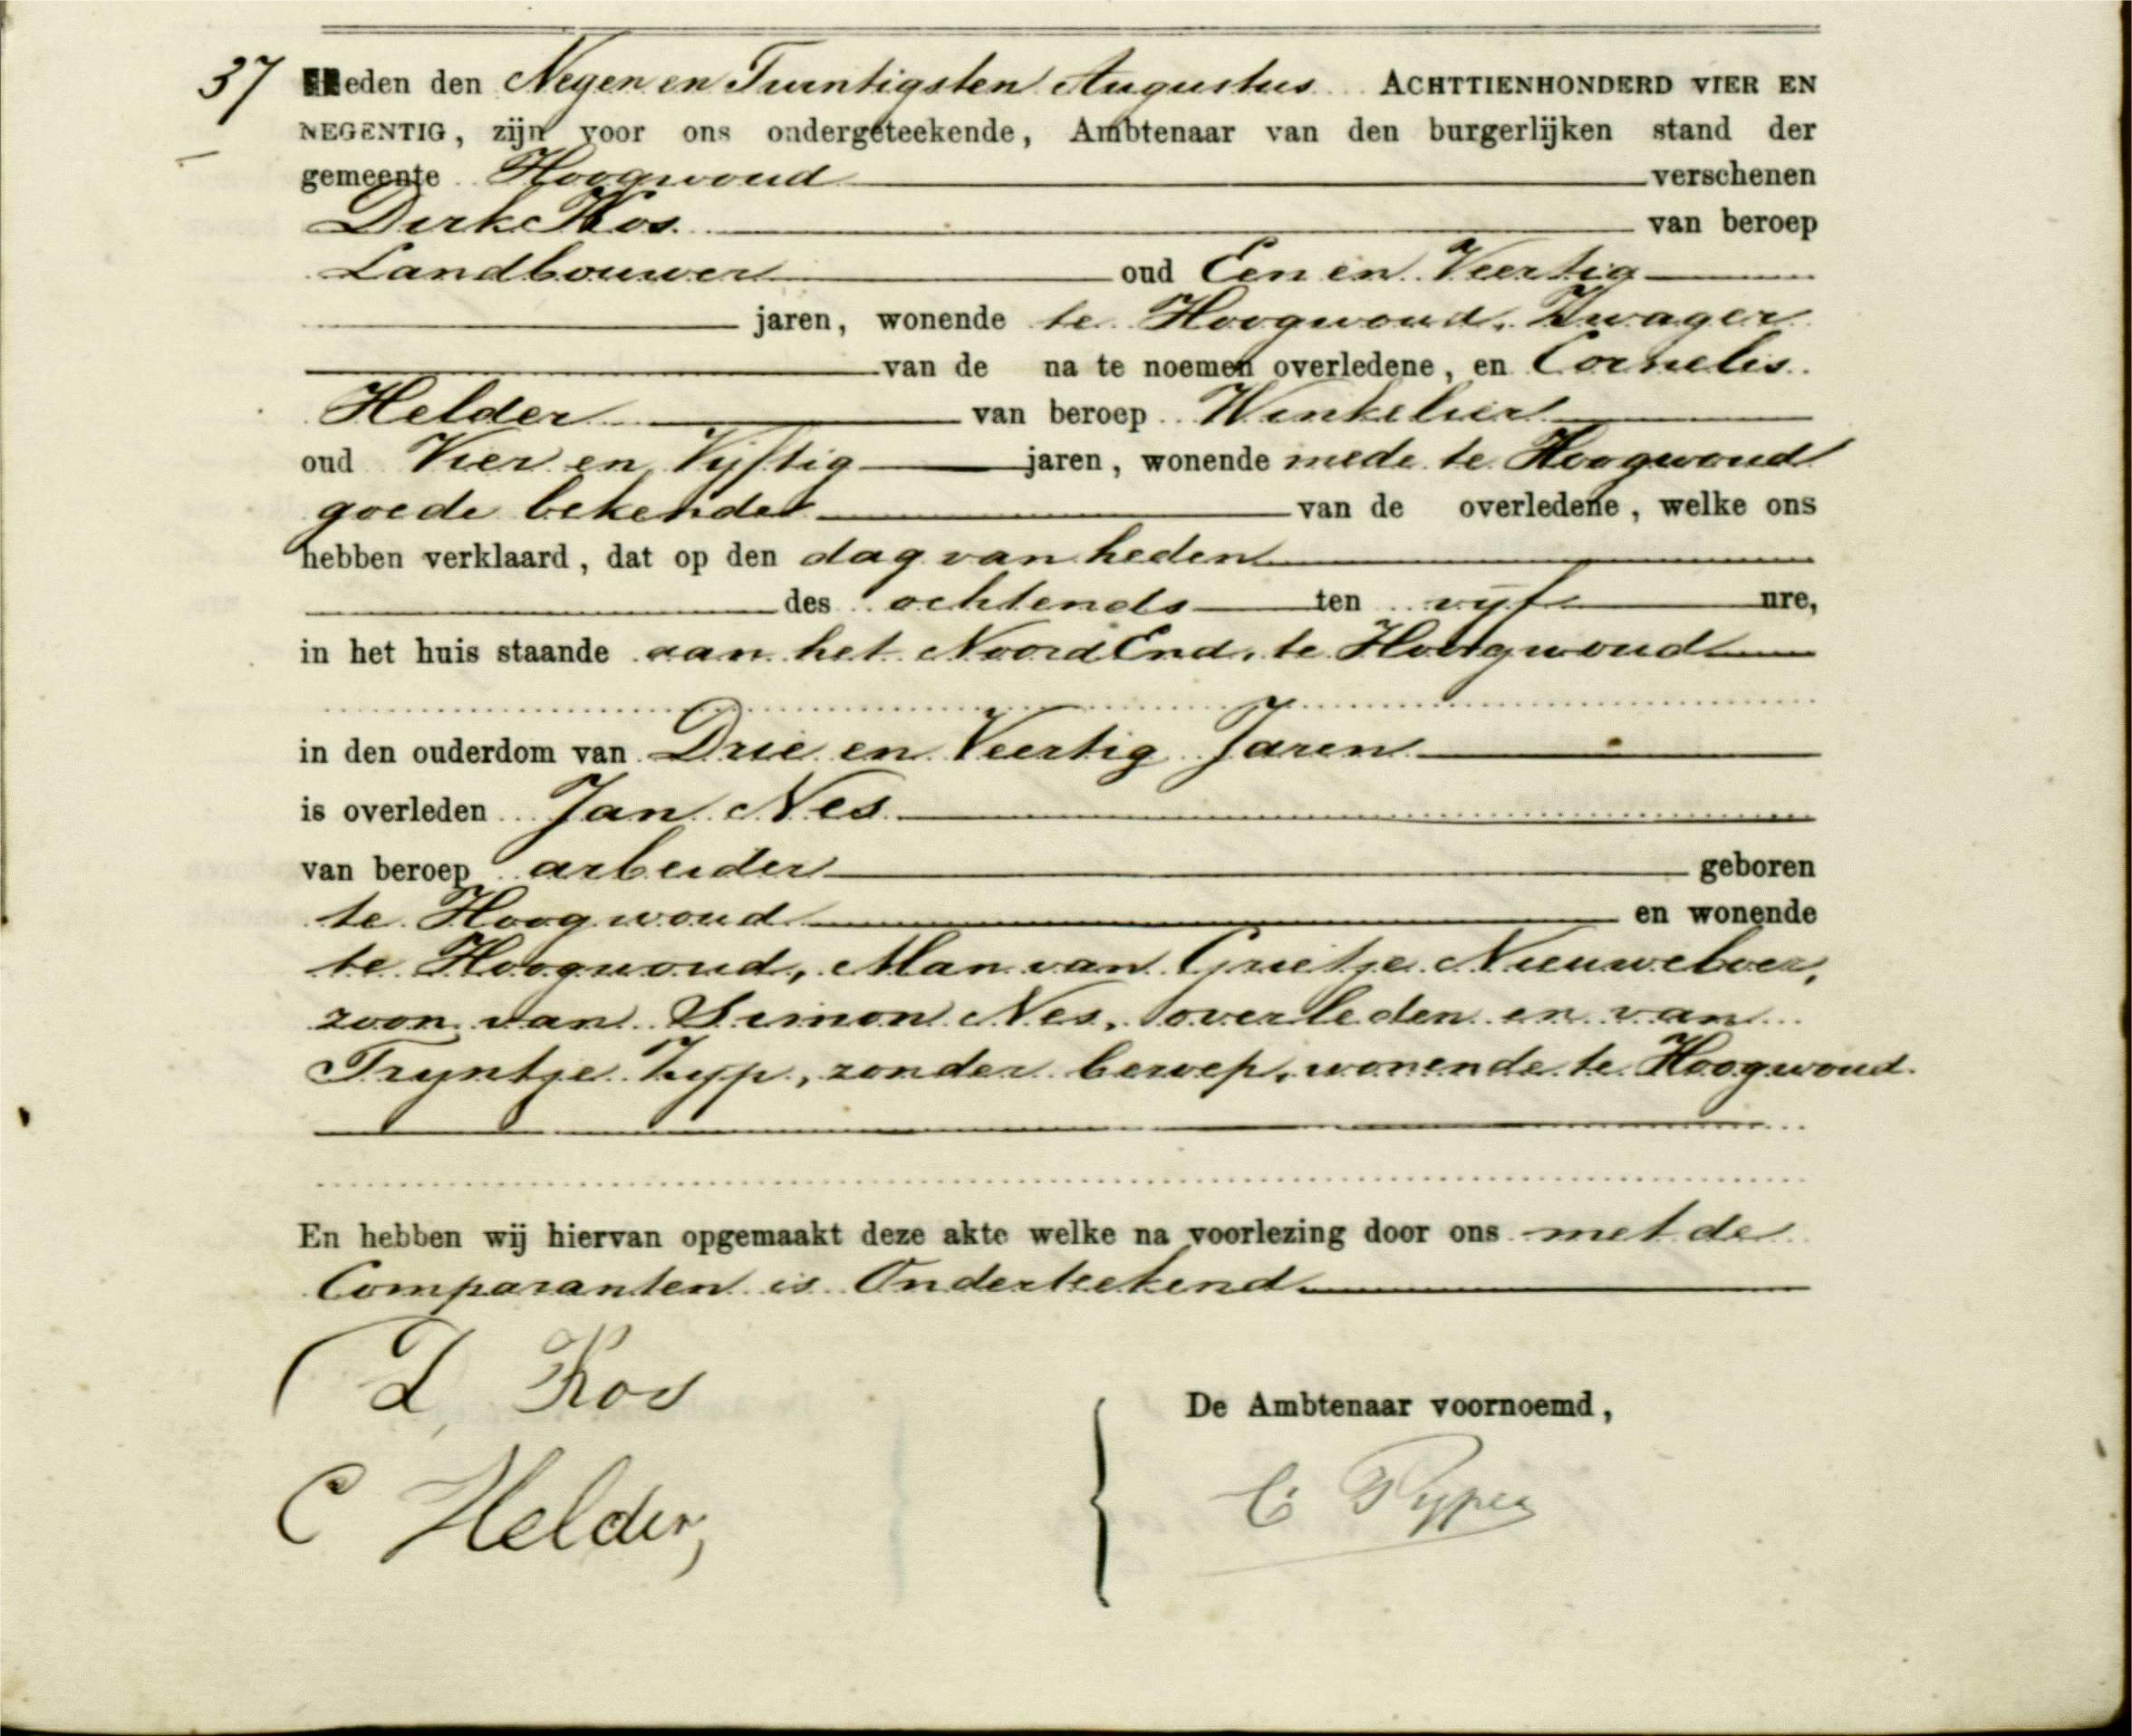 37 Heden den Negen en Twintigsten Augustus ACHTTIENHONDERD VIER EN
NEGENTIG, zijn voor ons ondergeteekende, Ambtenaar van den burgerlijken stand der
gemeente Hoogwoud verschenen
Dirk Kos van beroep
Landbouwer oud Een en Veertig
jaren, wonende te Hoogwoud, Zwager
van de na te noemen overledene, en Cornelis
Helder van beroep Winkelier
oud Vier en Vijftig jaren, wonende mede te Hoogwoud
goede bekende van de overledene, welke ons
hebben verklaard, dat op den dag van heden
des ochtends ten vijf ure,
in het huis staande aan het Noord End, te Hoogwoud
in den ouderdom van Drie en Veertig Jaren
is overleden Jan Nes
van beroep arbeider geboren
te Hoogwoud en wonende
te Hoogwoud, Man van Grietje Nieuweboer,
zoon van Simon Nes, overleden en van
Tryntje Zyp, zonder beroep, wonende te Hoogwoud.
En hebben wij hiervan opgemaakt deze akte welke na voorlezing door ons met de
Comparanten is Onderteekend
D Kos
De Ambtenaar voornoemd,
C Pyper
C Helder,